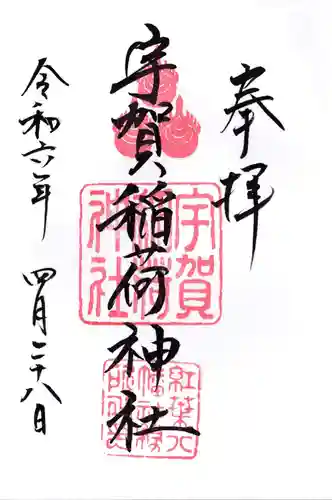 奉拝
宇賀稲荷神社
令和六年 四月二十八日
宇賀
稲荷
神社
紅葉八
幡社務